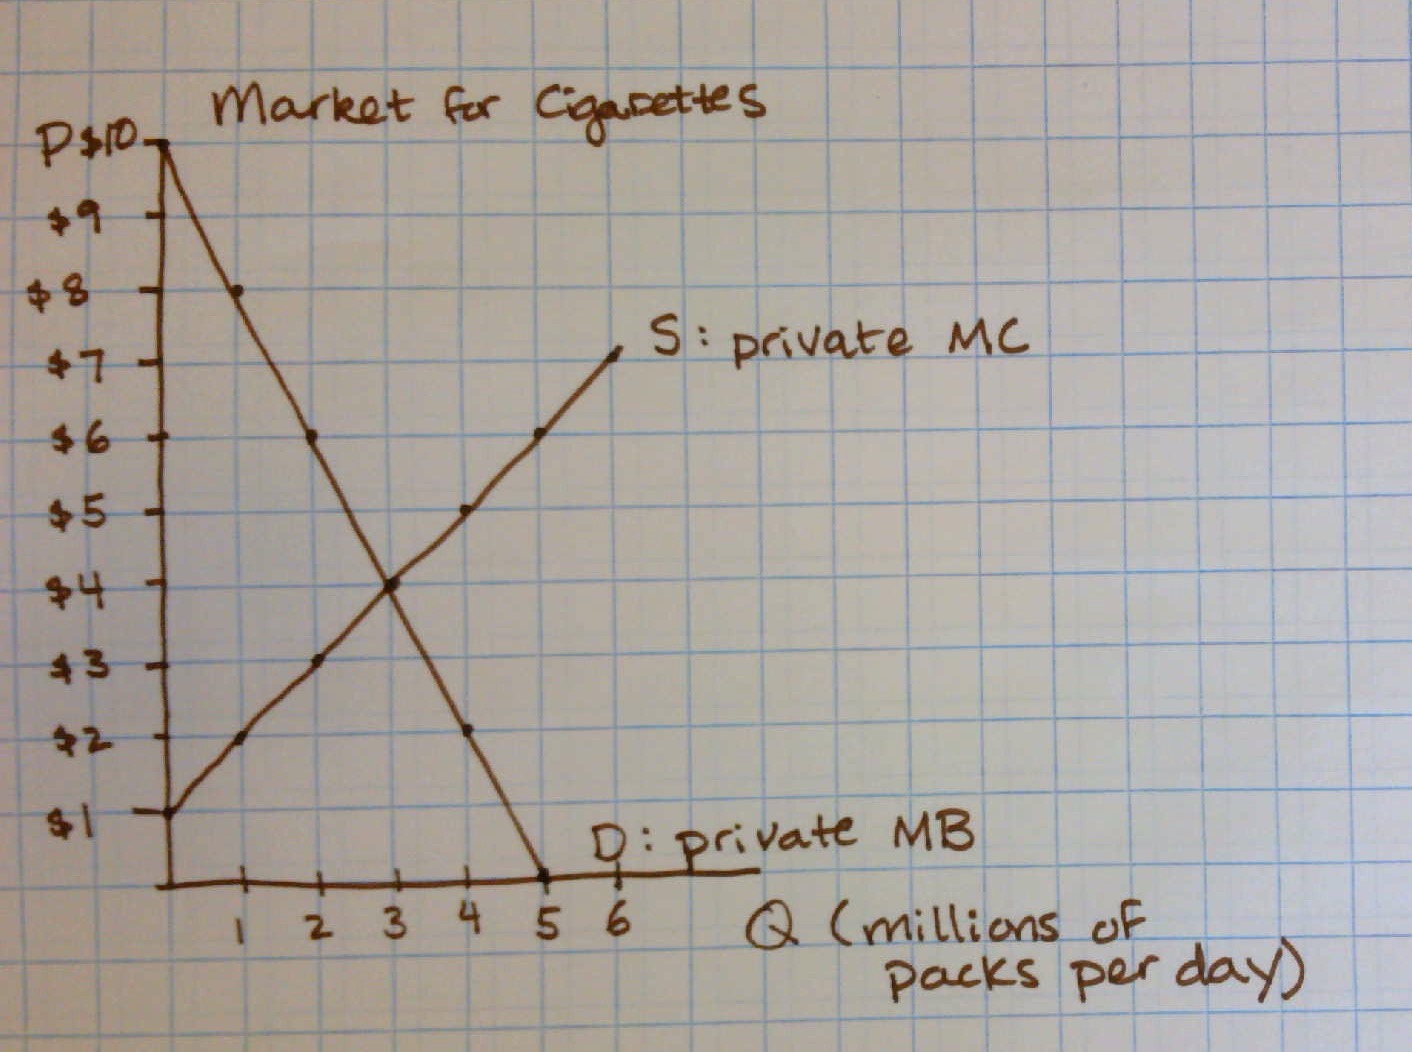 Market for Cigarettes
P $10
$9
$8
$7
$6
$5
$4
$3
$2
$1
S: private MC
D: private MB
1 2 3 4 5 6
Q (millions of
packs per day)